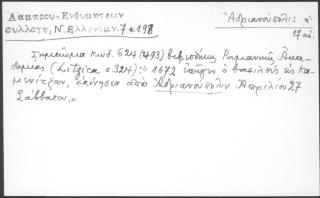 Λάμπρου, Ἐνθυμήσεων
συλλογή, Ν. Ἑλληνομν. 7 σ 198
Ἀδριανούπολις
17 αἰ.
Σημείωμα κωδ. 624 (493) βιβλιοθήκης Ρουμανικῆς Ἀκα-
δημίας (Litzica σ. 324): 1672 ὁ βασιλεὺς εἰς Κα-
μενίτζαν, ἐκίνησεν ἀπὸ Ἀδριανούπολιν Ἀπριλίου 27
Σάββατον,,